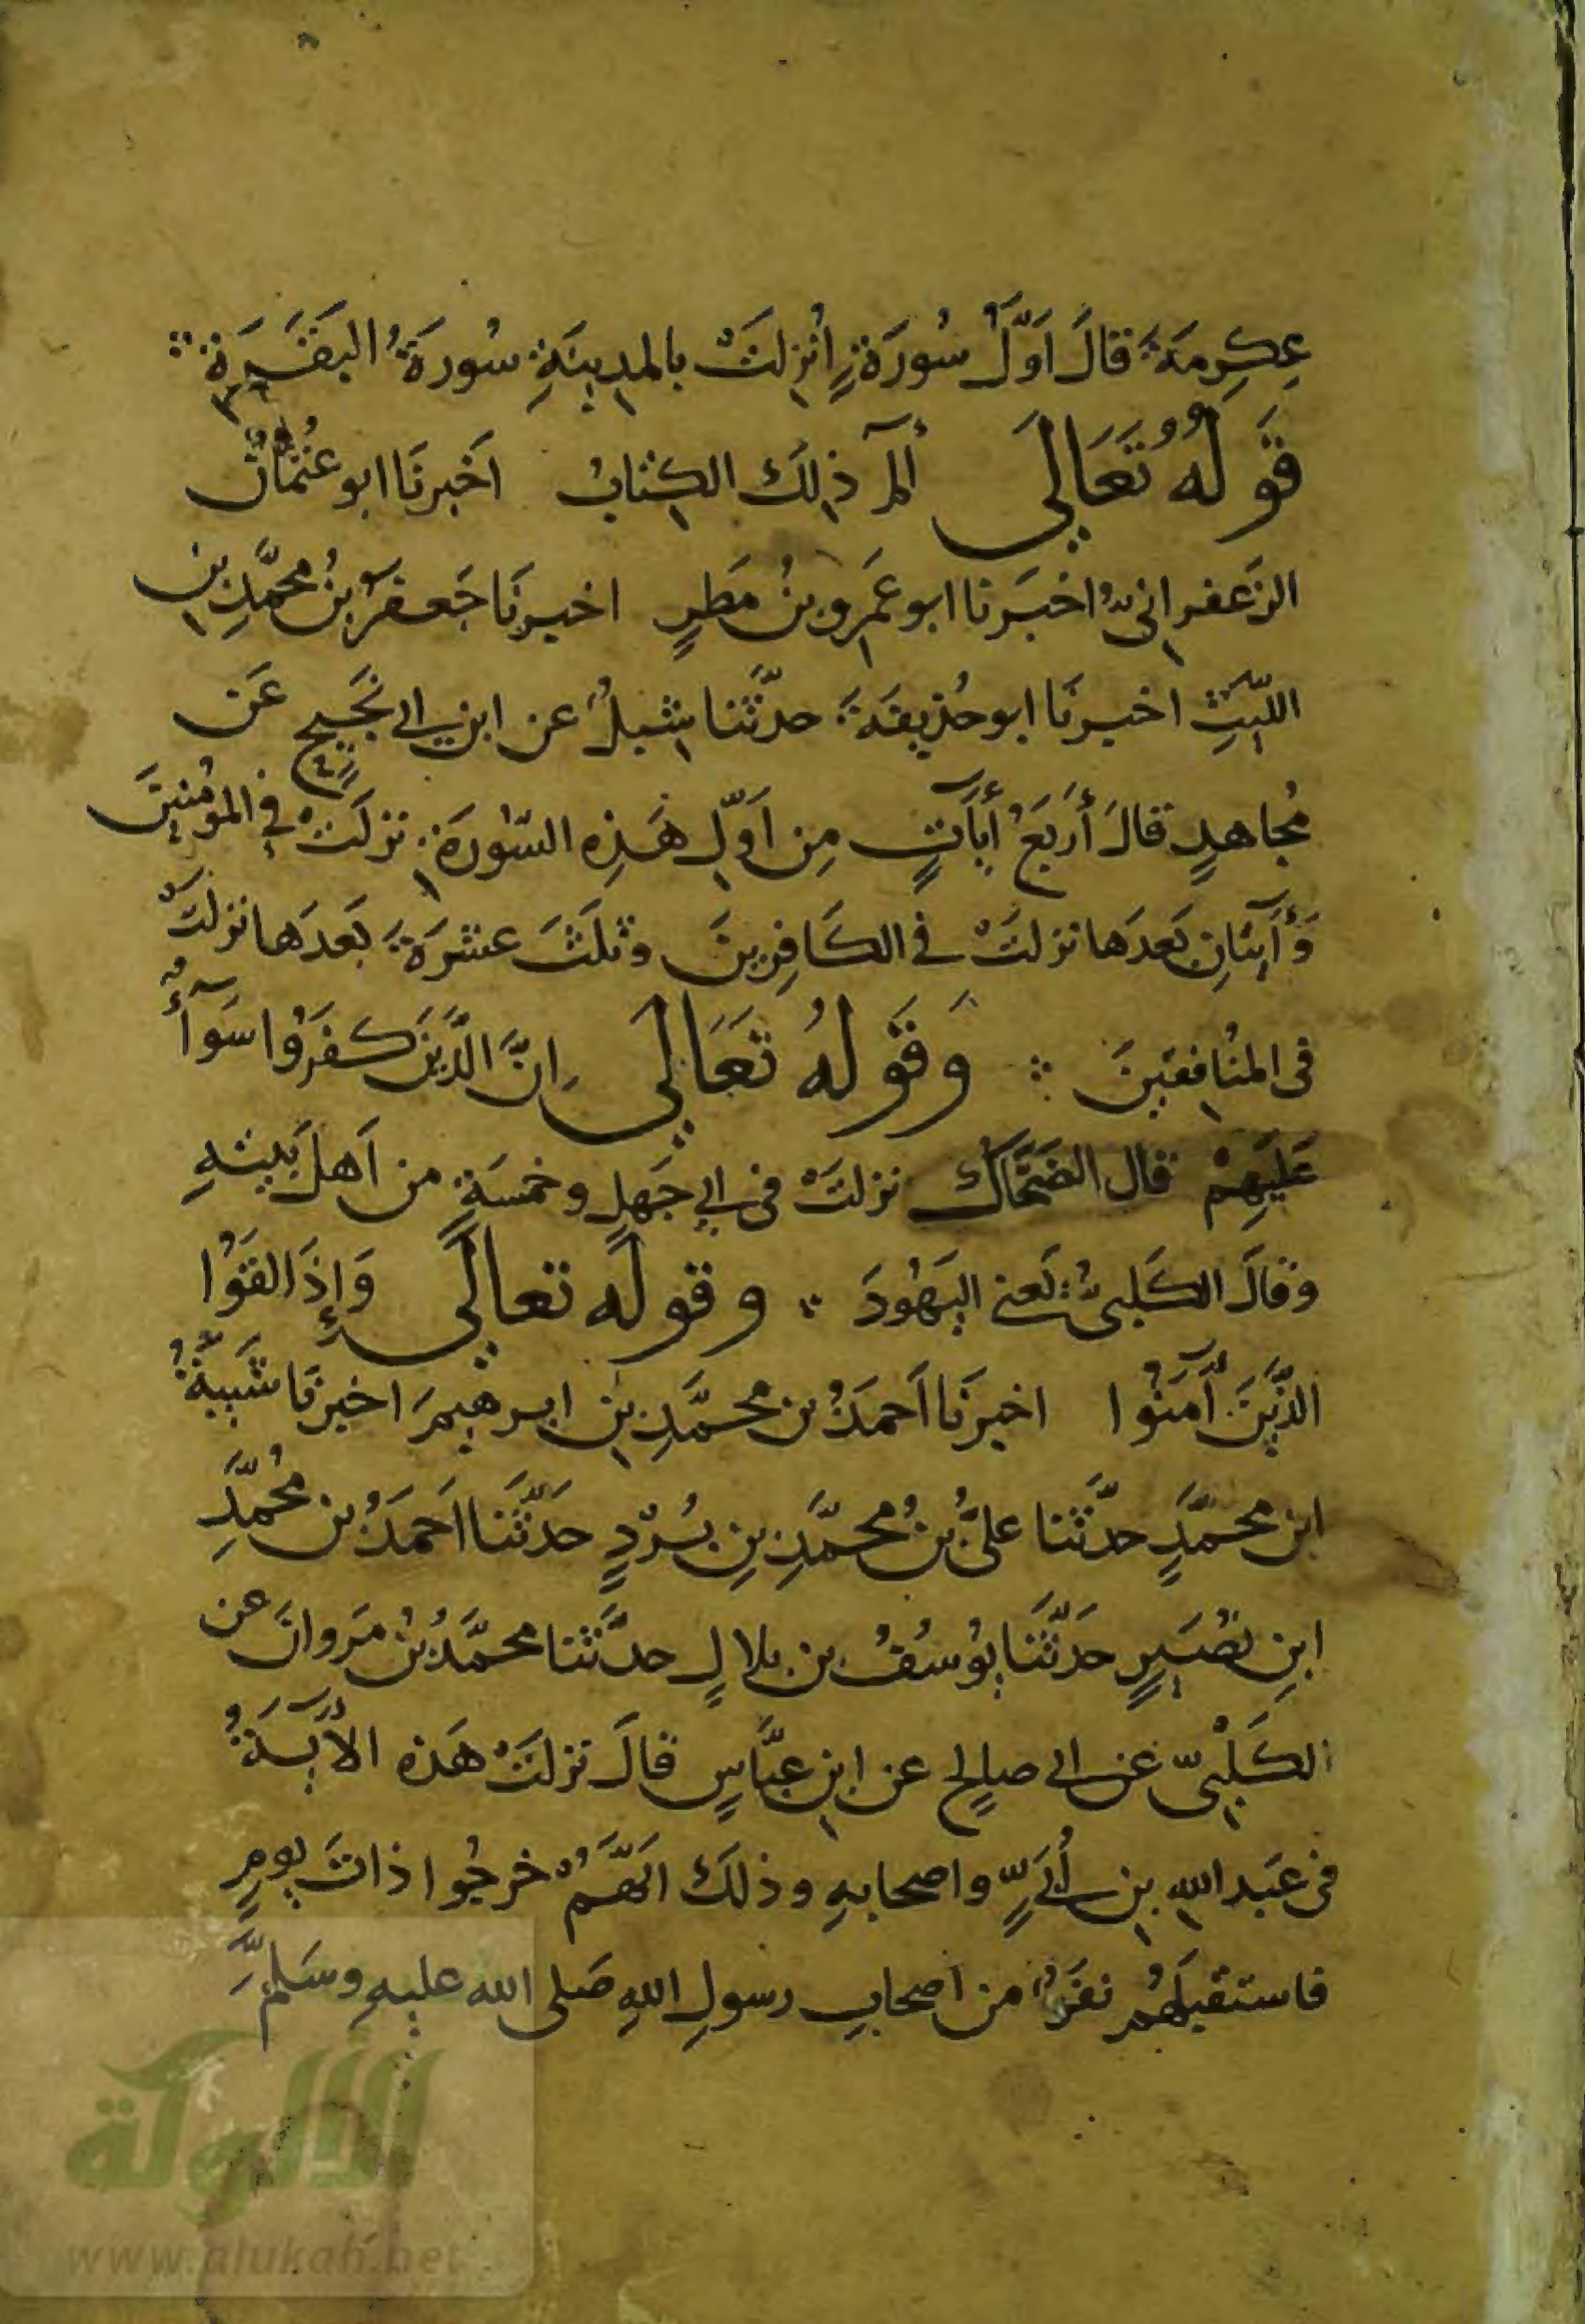 عِكرِمَةَ قالَ اَوَّلُ سُورَةٍ اُنزِلَتْ بالمدِينَةِ سُورَةُ البَقَرَةِ
قَولُهُ تَعَالىَ الٓمٓ ذٰلِكَ الكِتَابُ اَخبرنَا ابو عُثمَانَ
الزَعفرانىُّ اخبَرنا ابو عَمرو بنُ مَطَرٍ اخبرنَا جَعفَرُ بنُ محمَّدِ بنِ
اللَّيثِ اخبرنَا ابو حُذيفَةَ حدَّثنا شِبلٌ عن ابن ابى نَجَيحٍ عَن
مُجاهدٍ قالَ أَربَعُ أيَآتٍ مِن اَوَّلِ هَذِه السُّورَةِ نزلَتْ فى المؤمنينَ
وَأٓيتَانِ بَعدَها نزلَتْ فى الكَافِرِينَ وثلَثَ عشرَةَ بَعدَها نزلَتْ
فى المنُافقينَ وَقَولُهُ تَعَالىَ اِنَّ الَّذِينَ كَفَرُوا سَوَآءٌ
عَلَيهِمْ قال الضَحَّاكُ نزلَتْ فى ابى جَهلٍ وخمسَةٍ من اَهلِ بَيتهِ
وقالَ الكَلبىُّ يَعنى اليَهُودَ وقولُه تعالىَ وَإِذَا لقَوُا
الذَّينَ آمَنُوا اخبرنَا اَحمَدُ بن محمَّدِ بنِ ابرهيمَ اخبرنَا شَيبةُ
ابن محمَّدٍ حدَّثنا علىُّ بنُ محمَّدِ بنِ بُرْدٍ حَدَّثَنا اَحمَدُ بن مُحمَّدِ
ابنِ نصُيَرٍ حَدَّثنَا يوُسُفُ بن بلالٍ حدَّثنا محمَّدُ بنُ مَروانَ عن
الكَلْبىّ عن ابى صالحٍ عن ابنِ عبَّاسٍ قالَ نزلَتْ هَذه الاٰيَةُ
فى عَبد اللهِ بنِ أُبَىٍّ واصحابهِ وذلكَ اَنَّهُمْ خرجُوا ذاتَ يومٍ
فاستقبلَهُم نفَرٌ من اصحابِ رسولِ اللهِ صَلى الله عليهِ وسَلمَّ
الألوكة
www.alukah.net